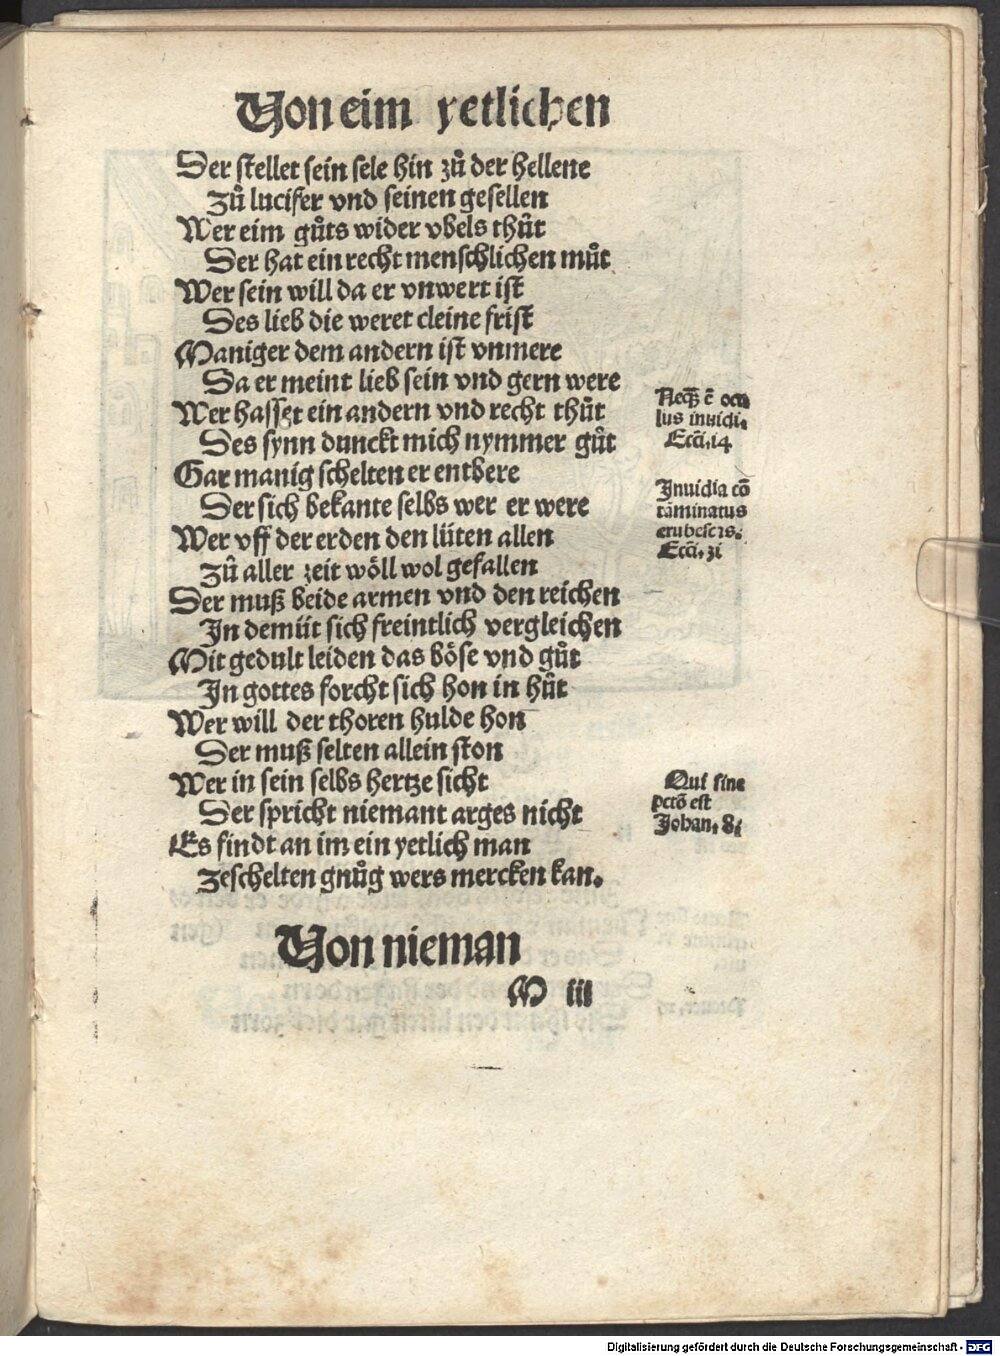 Von eim yetlichen
Der stellet sein sele hin zů der hellene
Zů lucifer vnd seinen gesellen
Wer eim gůts wider vbels thůt
Der hat ein recht menschlichen můt
Wer sein will da er vnwert ist
Des lieb die weret cleine frist
Maniger dem andern ist vnmere
Da er meint lieb sein vnd gern were
Wer hasset ein andern vnd recht thůt
Des synn dunckt mich nymmer gůt
Gar manig schelten er entbere
Der sich bekante selbs wer er were
Wer vff der erden den lüten allen
Zů aller zeit wöll wol gefallen
Der muß beide armen vnd den reichen
In demüt sich freintlich vergleichen
Mit gedult leiden das böse vnd gůt
In gottes forcht sich hon in hůt
Wer will der thoren hulde hon
Der muß selten allein ston
Wer in sein selbs hertze sicht
Der spricht niemant arges nicht
Es findt an im ein yetlich man
Zeschelten gnůg wers mercken kan.
Neqȝ ē ocu
lus inuidi.
Ecci. 14
Inuidia cō
tāminatus
erubesces.
Ecci. 31
Qui sine
pctō est
Johan. 8i
Von nieman
M iii
Digitalisierung gefördert durch die Deutsche Forschungsgemeinschaft - DFG